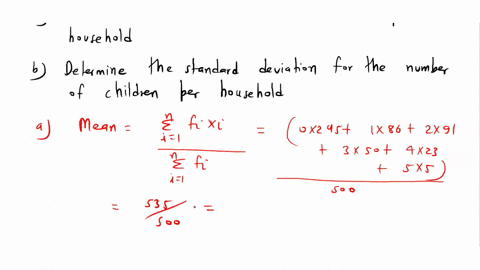 household
b) Determine the standard deviation for the number
of children per household
a) Mean = n Σ i=1 fi xi / n Σ i=1 fi = (0x245+ 1x86+ 2x91
+ 3x50+ 4x23
+ 5x5)
500
= 535/500 · =